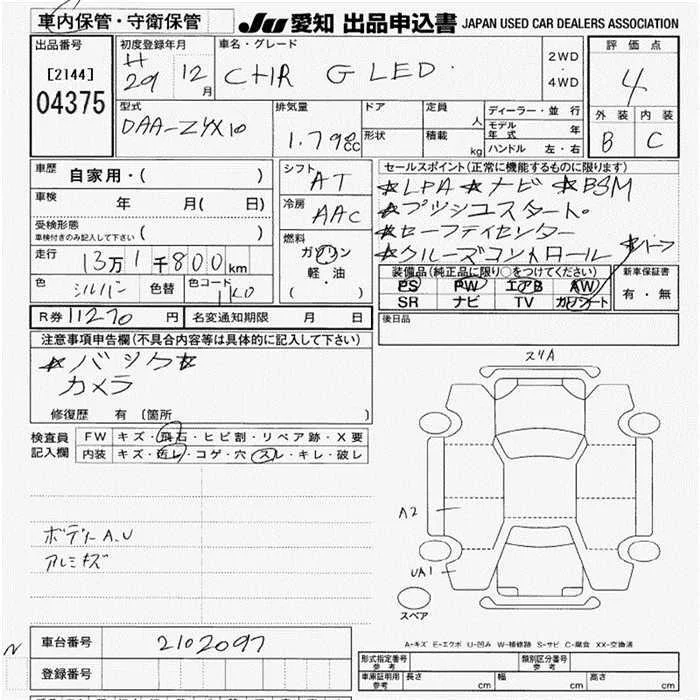 車内保管・守衛保管 JU 愛知 出品申込書 JAPAN USED CAR DEALERS ASSOCIATION
出品番号 初度登録年月 車名・グレード 評価点
[2144] H 29 12月 CHR G LED 2WD・4WD 4
04375
型式 排気量 ドア 定員 人 ディーラー・並行 外装 内装
DAA-ZYX10 1.790cc 形状 積載 kg モデル年式 年 B C
ハンドル 左・右
車歴 自家用・( ) シフト AT セールスポイント(正常に機能するものに限ります)
車検 年 月( 日) 冷房 AAC ☆LPA ☆ナビ ☆BSM
☆プッシュスタート。
受検形態 車検付きのみ記入して下さい ( ) 燃料 ☆セーフティセンサー
走行 13万1千800km ガソリン ☆クルーズコントロール
軽油
色 シルバー 色替 色コード 1K0 ( ・ ) 装備品(純正品に限り○をつけてください) 新車保証書
PS PW エアB AW 有・無
SR ナビ TV カワシート
R券 11270 円 名変通知期限 月 日 後日品
注意事項申告欄(不具合内容等は具体的に記入して下さい)
☆バック☆
カメラ
スリA
修復歴 有 〔箇所 〕
検査員記入欄 FW キズ・飛石・ヒビ割・リペア跡・X要
内装 キズ・汚レ・コゲ・穴・スレ・キレ・破レ
A2
ボデーA.U
アルミキズ
UA1
スペア
A-キズ E-エクボ U-凹み W-補修跡 S-サビ C-腐食 XX-交換済
N 車台番号 2102097
登録番号
形式指定番号 参考 類別区分番号 参考
車庫証明用 参考 長さ cm 幅 cm 高さ cm